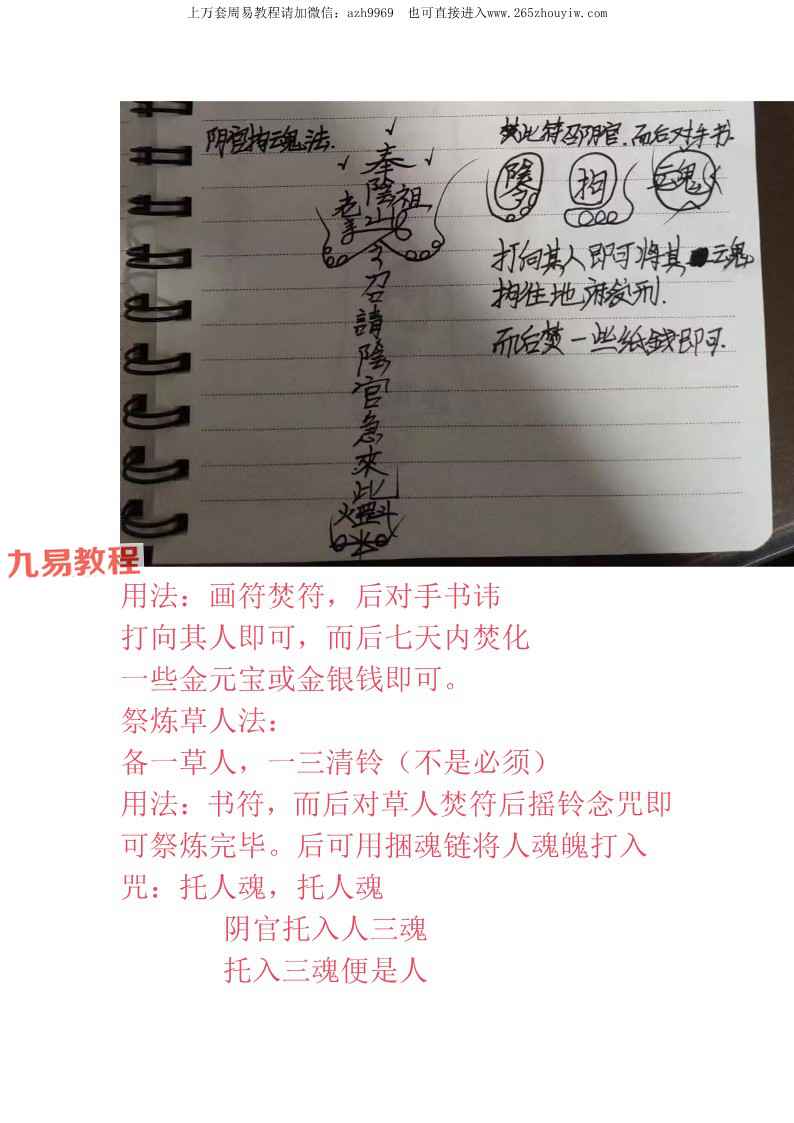 上万套周易教程请加微信：azh9969 也可直接进入www.265zhouyiw.com
阴官拘魂法.
奉
陰
老 祖
山
令
召
請
陰
官
急
來
此
火 斗
水
焚此符召阴官.而后对手书.
陰 拘 魂
打向其人即可将其 魂
拘往地府受刑.
而后焚一些纸錢即可.
九易教程
用法：画符焚符，后对手书讳
打向其人即可，而后七天内焚化
一些金元宝或金银钱即可。
祭炼草人法：
备一草人，一三清铃（不是必须）
用法：书符，而后对草人焚符后摇铃念咒即
可祭炼完毕。后可用捆魂链将人魂魄打入
咒：托人魂，托人魂
阴官托入人三魂
托入三魂便是人